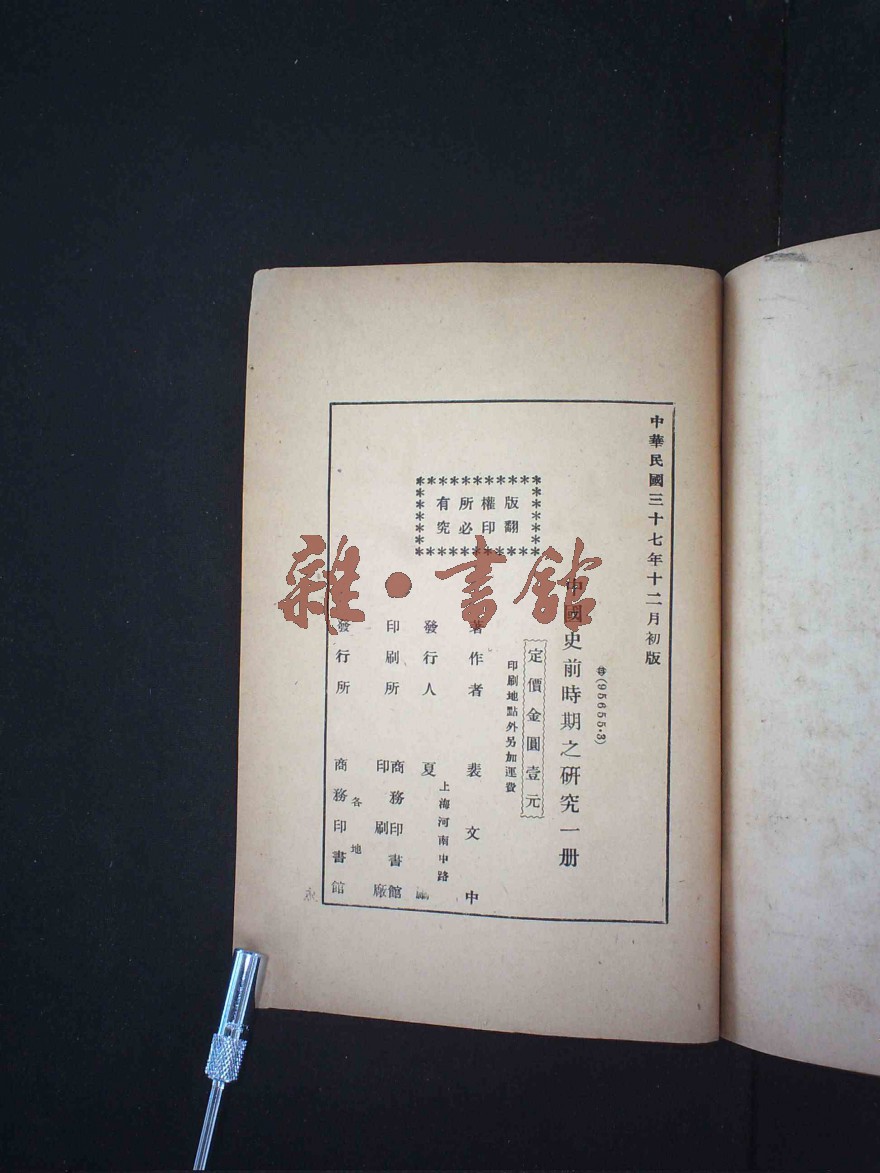 中華民國三十七年十二月初版
⁂(95655·3)
中國史前時期之研究一册
定價金圓壹元
印刷地點外另加運費
版權所有
翻印必究
著作者 裴文中
上海河南中路
發行人 夏
印刷所 商務印書館
印刷廠
各地
發行所 商務印書館
雜·書館